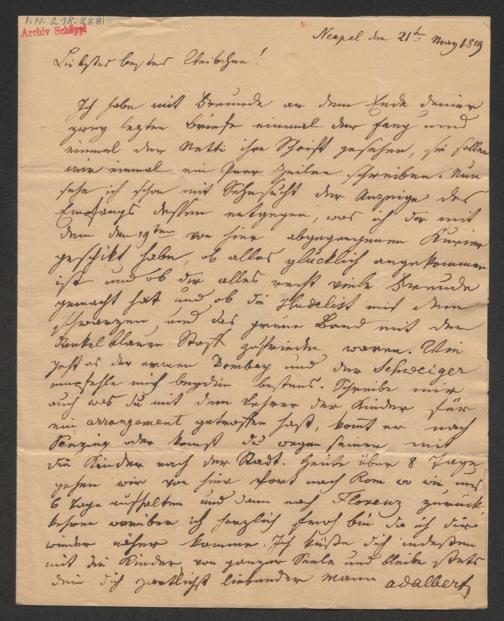 I.N. 218.888
Archiv Schöppl
Neapel den 21ten May 1819
Liebstes bestes Weibchen!
Ich habe mit Freude an dem Ende deiner
zwey letzten Briefe einmal der Fany und
einmal der Netti ihre Schrift gesehen, sie sollen
mir einmal ein Paar Zeilen schreiben. Nun
sehe ich schon mit Sehnsucht der Anzeige des
Empfangs dessen entgegen, was ich dir mit
dem den 19ten von hier abgegangenen Kurier
geschikt habe, ob alles glücklich angekommen
ist und ob dir alles recht viele Freude
gemacht hat und ob die mit dem
schwarzen, und das grüne Band mit dem
dunkel blauen Stoff zufrieden waren. Wie
geht es der armen Dombay und der Schweiger
empfehle mich beyden bestens. Schreibe mir
auch was du mit dem Lehrer der Kinder für
ein arrangement getroffen hast, komt er nach
Penzing oder komst du wegen seiner mit
die Kinder nach der Stadt. Heute über 8 Tage
gehen wir von hier fort nach Rom wo wir uns
6 Tage aufhalten und dann nach Florenz zurück
kehren worüber ich herzlich froh bin da ich dir
wieder näher komme. Ich küsse dich indessen
mit die Kinder von ganzer Seele und bleibe stets
dein dich zärtlichst liebender Mann adalbert